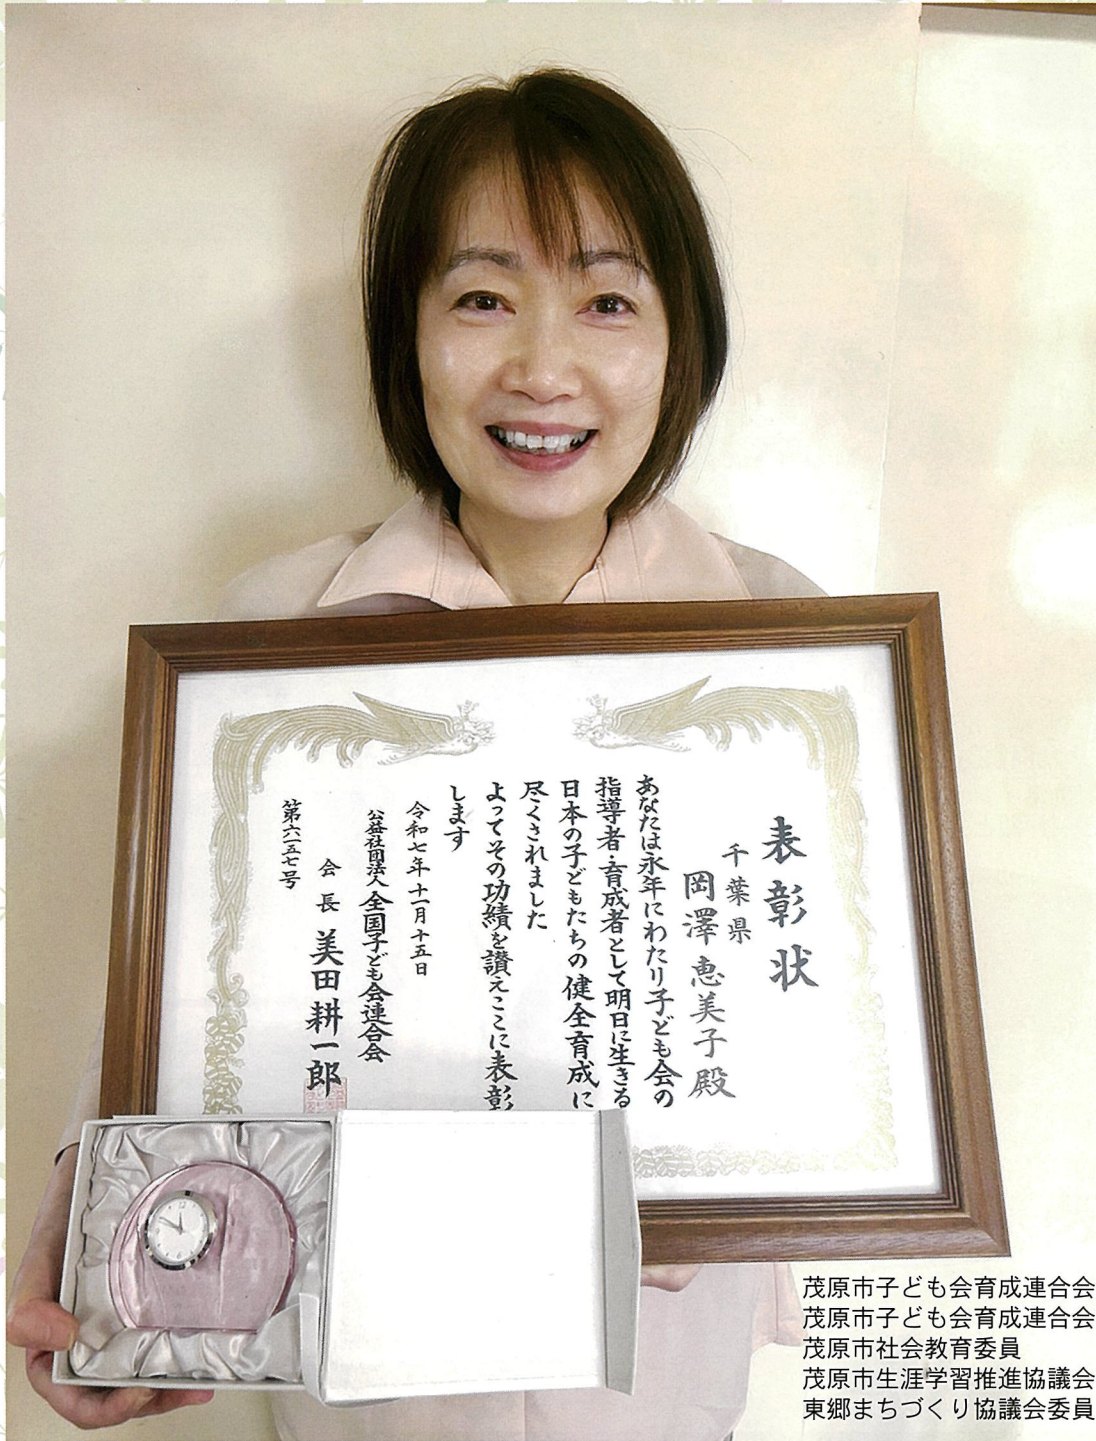 表彰状
千葉県
岡澤恵美子殿
あなたは永年にわたり子ども会の
指導者・育成者として明日に生きる
日本の子どもたちの健全育成に
尽くされました
よってその功績を讃えここに表彰
します
令和七年十一月十五日
公益社団法人全国子ども会連合会
会長 美田耕一郎
第六一五七号
茂原市子ども会育成連合会
茂原市子ども会育成連合会
茂原市社会教育委員
茂原市生涯学習推進協議会
東郷まちづくり協議会委員